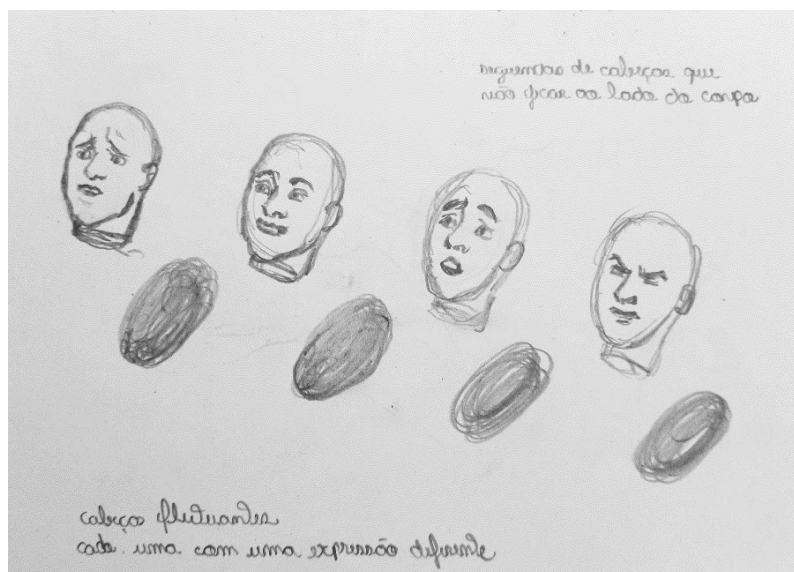 de cabeças que
vão ficar ao lado do corpo
cabeças flutuantes
cada uma com uma expressão diferente